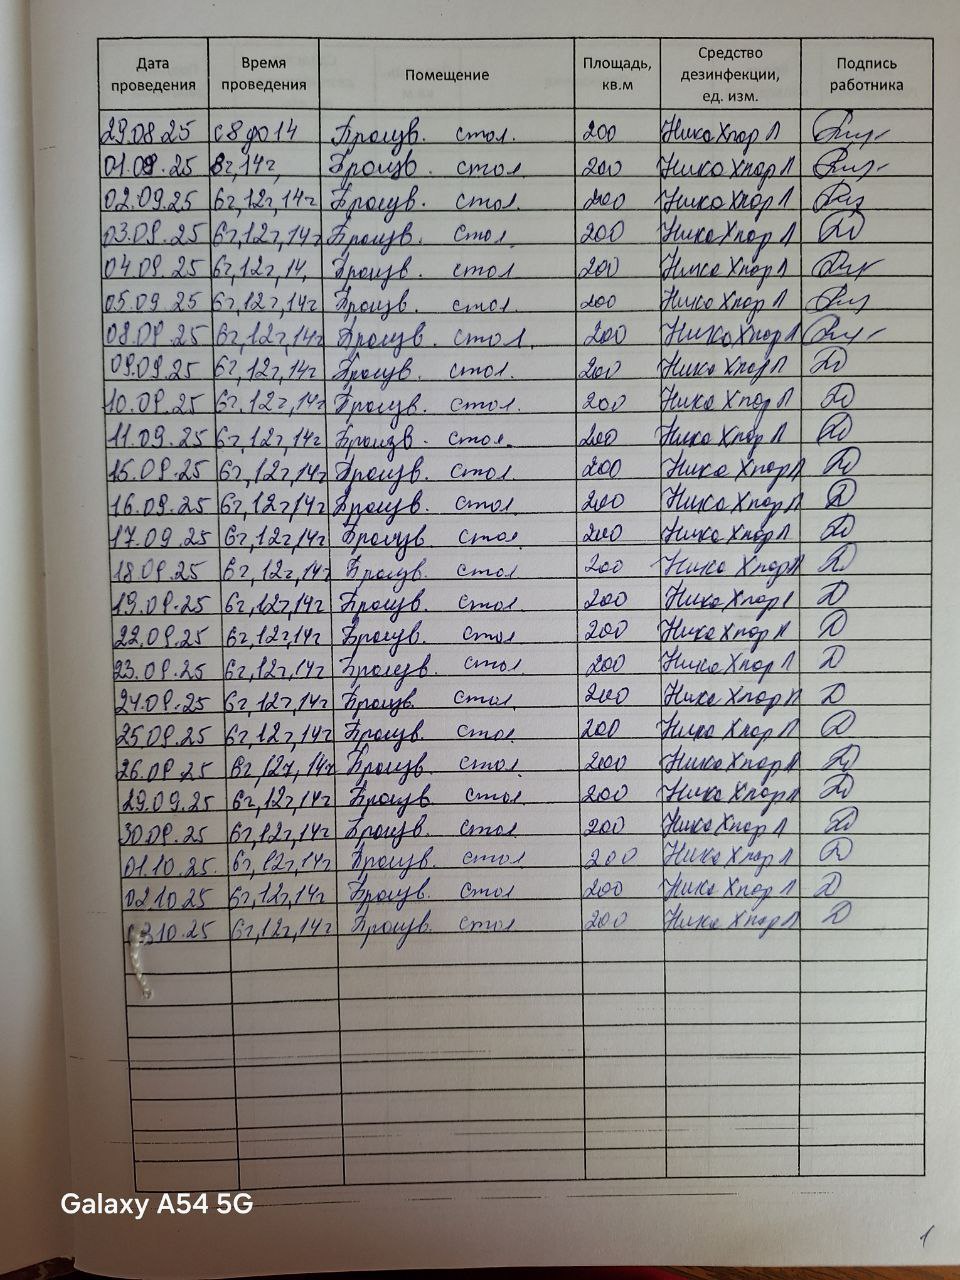 Дата проведения Время проведения Помещение Площадь, кв.м Средство дезинфекции, ед. изм. Подпись работника
29.08.25 с 8 до 14 Произв. стол. 200 НикаХлор Л
01.09.25 8ч,14ч, Произв. стол. 200 Ника Хлор Л
02.09.25 6ч,12ч,14ч Произв. стол. 200 Ника Хлор Л
03.09.25 6ч,12ч,14ч Произв. стол. 200 Ника Хлор Л
04.09.25 6ч,12ч,14, Произв. стол 200 Ника Хлор Л
05.09.25 6ч,12ч,14ч Произв. стол 200 Ника Хлор Л
08.09.25 6ч,12ч,14ч Произв. стол. 200 Ника Хлор Л
09.09.25 6ч,12ч,14ч Произв. стол. 200 Ника Хлор Л
10.09.25 6ч,12ч,14ч Произв. стол. 200 Ника Хлор Л
11.09.25 6ч,12ч,14ч Произв. стол. 200 Ника Хлор Л
15.09.25 6ч,12ч,14ч Произв. стол 200 Ника Хлор Л
16.09.25 6ч,12ч,14ч Произв. стол. 200 Ника Хлор Л
17.09.25 6ч,12ч,14ч Произв. стол 200 Ника Хлор Л
18.09.25 6ч,12ч,14ч Произв. стол 200 Ника Хлор Л
19.09.25 6ч,12ч,14ч Произв. стол. 200 Ника Хлор Л
22.09.25 6ч,12ч,14ч Произв. стол 200 Ника Хлор Л
23.09.25 6ч,12ч,14ч Произв. стол 200 Ника Хлор Л
24.09.25 6ч,12ч,14ч Произв. стол. 200 Ника Хлор Л
25.09.25 6ч,12ч,14ч Произв. стол. 200 Ника Хлор Л
26.09.25 6ч,12ч,14ч Произв. стол 200 Ника Хлор Л
29.09.25 6ч,12ч,14ч Произв. стол. 200 Ника Хлор Л
30.09.25 6ч,12ч,14ч Произв. стол 200 Ника Хлор Л
01.10.25. 6ч,12ч,14ч Произв. стол 200 Ника Хлор Л
02.10.25 6ч,12ч,14ч Произв. стол 200 Ника Хлор Л
03.10.25 6ч,12ч,14ч Произв. стол 200 Ника Хлор Л
Galaxy A54 5G
1